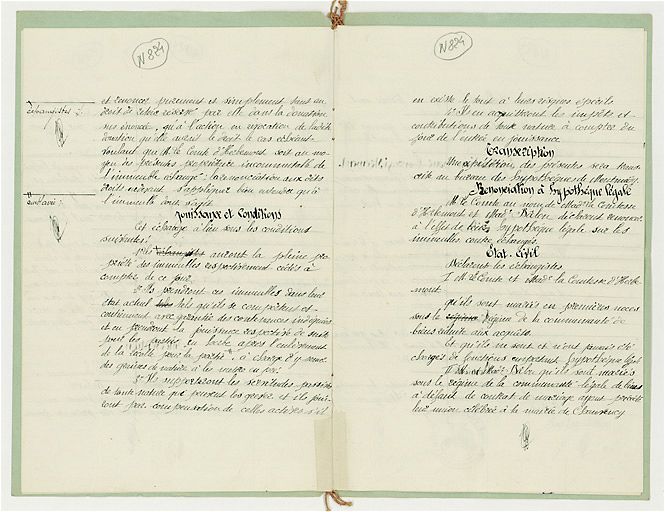 N 824
et renonce purement et simplement tant au
droit de retour réservé par elle dans la donation
sus énoncée, qu'à l'action en révocation de ladite
donation qu'elle aurait le droit le cas échéant
voulant que M. le Comte d'Hoclemont soit au mo
yen des présentes propriétaire incommutable de
l'immeuble échangé; la renonciation aux dits
droits
s'appliquer bien entendu qu'à
l'immeuble dont s'agit.
Jouissance et Conditions
Cet échange a lieu sous les conditions
suivantes:
1° Ils auront la pleine pro
priété des immeubles respectivement cédés à
compter de ce jour.
2° Ils prendront ces immeubles dans leur
état actuel tels qu'ils se comportent et
contiennent avec garantie des contenances indiquées
et en prendront la jouissance respective de suite
pour les parties en
après l'enlèvement
de la récolte pour la partie
à charge d'y
des
3° Ils supporteront les servitudes passives
de toute nature que peuvent les grever et ils joui
ront par compensation de celles actives s'il
N 824
en existe le tout à leurs risques et périls
4° Ils en acquitteront les impôts et
contributions de toute nature à compter du
jour de l'entrée en jouissance.
Transcription
Une expédition des présentes sera trans
crite au bureau des hypothèques de Montmédy
Renonciation à hypothèque légale
M. le Comte au nom de Made la Comtesse
d'Hoclemont et Made Bilon déclarent renoncer
à l'effet de leur hypothèque légale sur les
immeubles contre échangés.
État-Civil
Déclarent les échangistes
I M. le Comte et Made la Comtesse d'Hocle
mont
qu'ils sont mariés en premières noces
sous le régime de la communauté de
biens réduite aux acquêts.
Et qu'ils ne sont et n'ont jamais été
chargés de fonctions emportant hypothèque légale
II M. et Made Bilon qu'ils sont mariés
sous le régime de la communauté légale de biens
à défaut de contrat de mariage ayant précédé
leur union célébrée à la mairie de Chauvency